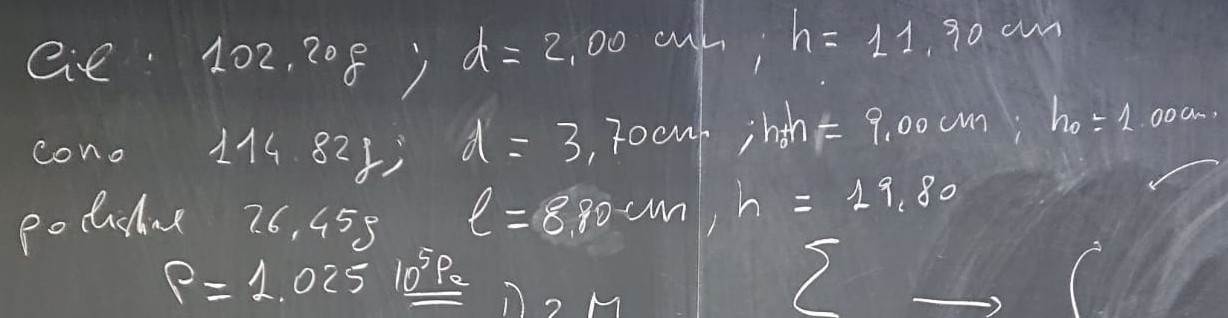 Cil : 102,20g ; d = 2,00 cm ; h = 11,90 cm
cono 114.82g ; d = 3,70cm ; h₀+h = 9,00 cm ; h₀ = 1.00cm.
26,45g l = 8,80 cm, h = 19,80
P = 1.025 10⁵Pa 1) 2 M Σ → (